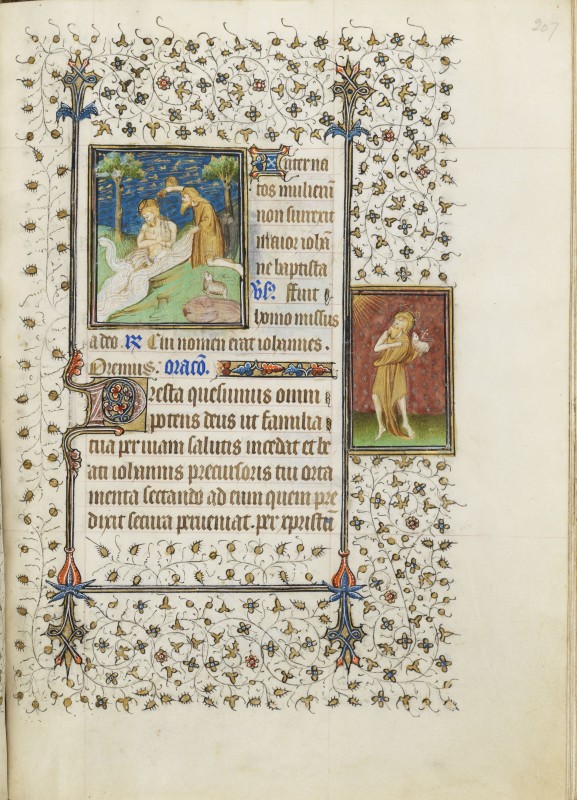 207
Inter na
tos mulierū
non surrexit
maior iohā
ne baptista
Vs. Fuit
homo missus
a deo. R Cui nomen erat iohannes.
Oremus. oracō.
Presta quesumus omni
potens deus ut familia
tua per uiam salutis incedat et be
ati iohannis precursoris tui orta
menta sectando ad eum quem pre
dixit secura perueniat. per xpristū